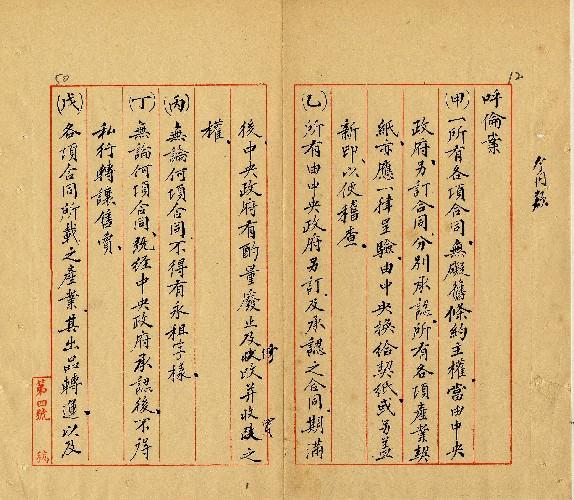 12
呼倫案
(甲)一所有各項合同無礙舊條約主權當由中央
政府另訂合同、分別承認、所有各項產業契
紙、亦應一律呈驗、由中央換給契紙、或另蓋
新印、以便稽查、
(乙)所有由中央政府另訂、及承認之合同、期滿
50
後、中央政府有酌量廢止及修改并收買之
權、
(丙)無論何項合同、不得有永租字樣、
(丁)無論何項合同、既經中央政府承認後、不得
私行轉讓售賣、
(戊)各項合同所載之產業、其出品轉運、以及
第四號 稿